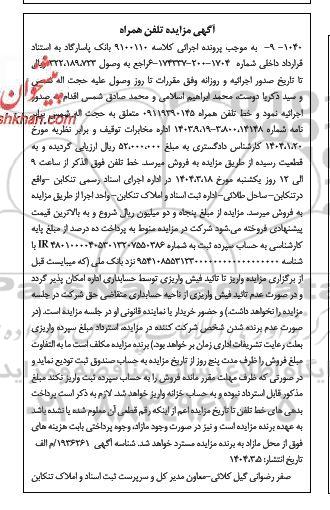 آگهی مزایده تلفن همراه
۱۰۴۰- ۹- به موجب پرونده اجرائی کلاسه ۹۱۰۰۱۱۰ بانک پاسارگاد به استناد
قرارداد داخلی شماره ۱۷۰۴-۲۰۰-۱۷۴۳۳۷-۶ راجع به وصول ۳۲۲،۱۸۹،۷۳۳ ریال
تا تاریخ صدور اجرائیه و روزانه وفق مقررات تا روز وصول علیه حجت اله شمس
و سید ذکریا دوست، محمد ابراهیم اسلامی و محمد صادق شمس اقدام به صدور
اجرائیه نمود و خط تلفن همراه ۰۹۱۱۹۳۹۰۱۴۵ متعلق به حجت اله شمس برابر
نامه شماره ۱۴۰۳،۹،۱۹-۳۸۰۰،۱۴۱۴۸ اداره مخابرات توقیف و برابر نظریه مورخ
۱۴۰۴،۱،۲۰ کارشناس دادگستری به مبلغ ۵۲،۰۰۰،۰۰۰ ریال ارزیابی گردیده و به
قطعیت رسیده از طریق مزایده به فروش میرسد. خط تلفن فوق الذکر از ساعت ۹
الی ۱۲ روز یکشنبه مورخ ۱۴۰۴،۳،۱۸ در اداره اجرای اسناد رسمی تنکابن -واقع
در تنکابن-ساحل طلائی-اداره ثبت اسناد و املاک تنکابن-واحد اجرا از طریق مزایده
به فروش میرسد. مزایده از مبلغ پنجاه و دو میلیون ریال شروع و به بالاترین قیمت
پیشنهادی فروخته می‌شود شرکت در مزایده منوط به پرداخت ده درصد از مبلغ پایه
کارشناسی به حساب سپرده ثبت به شماره IR ۴۸۰۱۰۰۰۰۴۰۵۳۰۱۳۲۰۷۵۵۰۳۸۶ با
شناسه نزد بانک ملی (که میبایست قبل
از برگزاری مزایده واریز تا تائید فیش واریزی توسط حسابداری اداره امکان پذیر گردد
و در صورت عدم تائید فیش واریزی از ناحیه حسابداری متقاضی حق شرکت در جلسه
مزایده را نخواهد داشت.) و حضور خریدار یا نماینده قانونی او در جلسه مزایده است. (در
صورت عدم برنده شدن شخص شرکت کننده در مزایده، استرداد مبلغ سپرده واریزی
بعلت رعایت تشریفات اداری زمان بر خواهد بود) برنده مزایده مکلف است ما به التفاوت
مبلغ فروش را ظرف مدت پنج روز از تاریخ مزایده به حساب صندوق ثبت تودیع نماید و
در صورتی که ظرف مهلت مقرر مانده فروش را به حساب سپرده ثبت واریز نکند مبلغ
مذکور قابل استرداد نبوده و به حساب خزانه واریز خواهد شد. لازم به ذکر است پرداخت
بدهی های خط تلفن تا تاریخ مزایده اعم از اینکه رقم قطعی آن معلوم شده یا نشده باشد
به عهده برنده مزایده است و نیز در صورت وجود مازاد، وجوه پرداختی بابت هزینه های
فوق از محل مازاد به برنده مزایده مسترد خواهد شد. شناسه آگهی ۱۹۳۶۲۶۱/م الف
تاریخ انتشار: ۱۴۰۴،۳،۵
صفر رضوانی گیل کلائی-معاون مدیر کل و سرپرست ثبت اسناد و املاک تنکابن